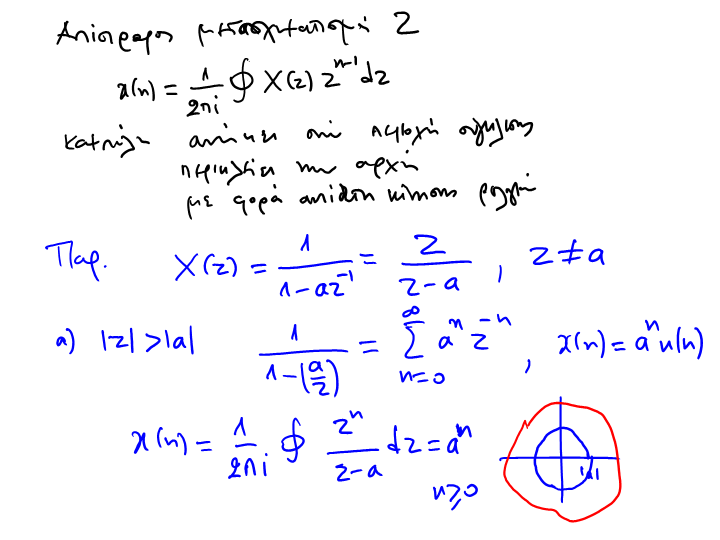 Αντίστροφος μετασχηματισμός Z
x(n) = 1/2πi ∮ X(z) z^{n-1} dz
καμπύλη ανήκει στη περιοχή σύγκλισης
περικλείει την αρχή
με φορά αντίθετη κίνησης ρολογιού
Παρ. X(z) = 1/(1-az^{-1}) = z/(z-a) , z ≠ a
a) |z| > |a| 1/(1-(a/z)) = ∑_{n=0}^{∞} a^n z^{-n} , x(n) = a^n u(n)
x(n) = 1/2πi ∮ z^n/(z-a) dz = a^n
n ≥ 0
|a|